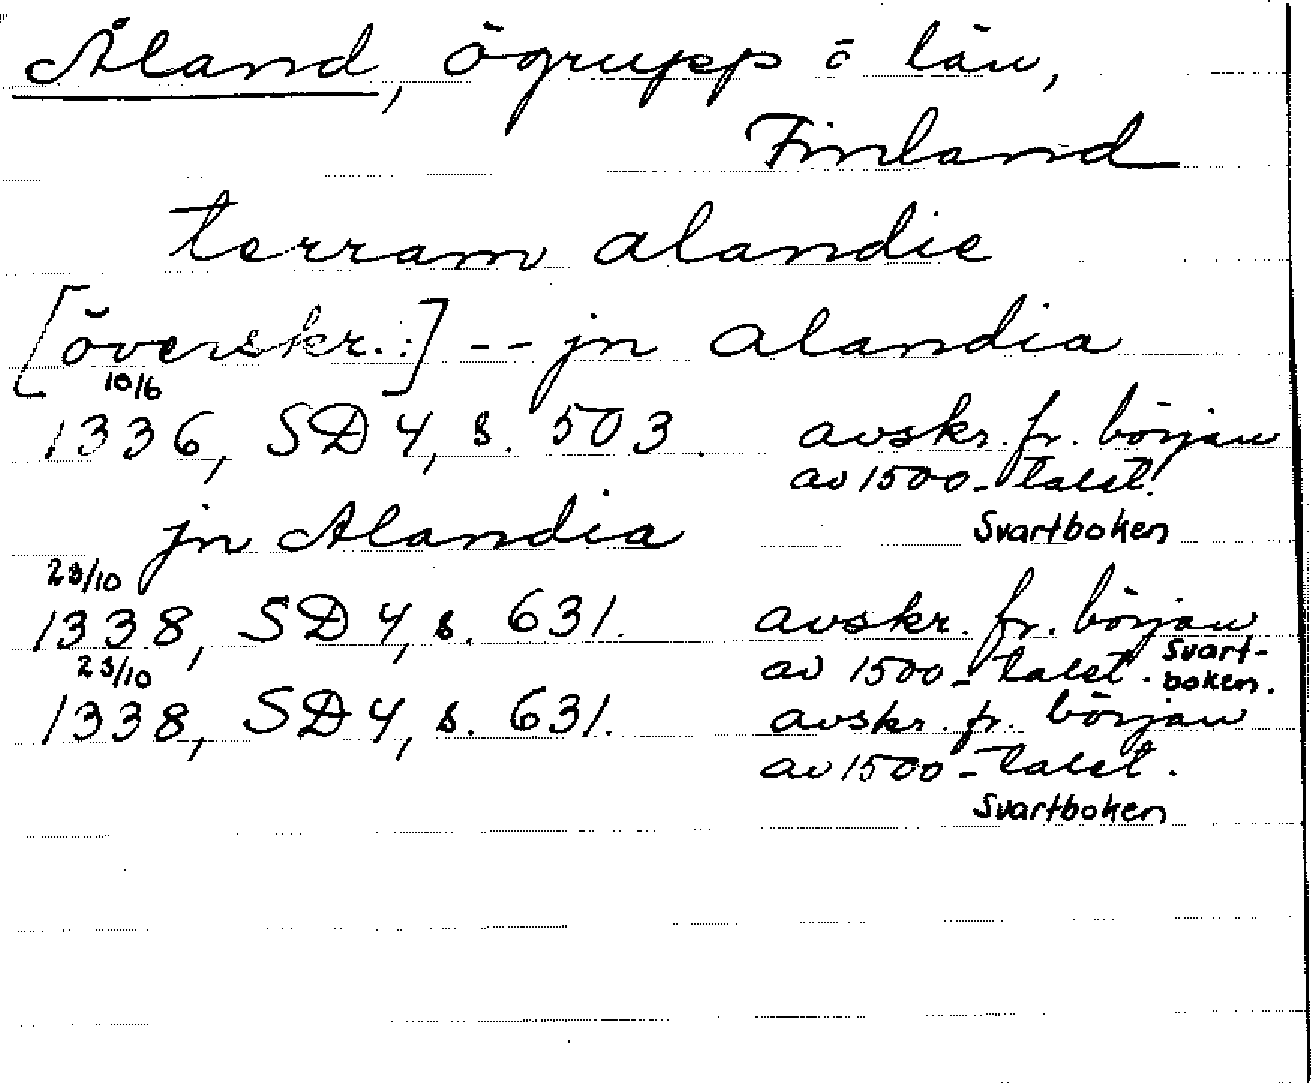 Åland, ögrupp o län,
Finland
terram alandie
[överskr.:] -- jn alandia
10/6
1336, SD 4, s. 503. avskr. fr. början
av 1500-talet.
jn Alandia Svartboken
23/10
1338, SD 4, s. 631. avskr. fr. början
av 1500-talet. Svart-
boken.
23/10
1338, SD 4, s. 631. avskr. fr. början
av 1500-talet.
Svartboken